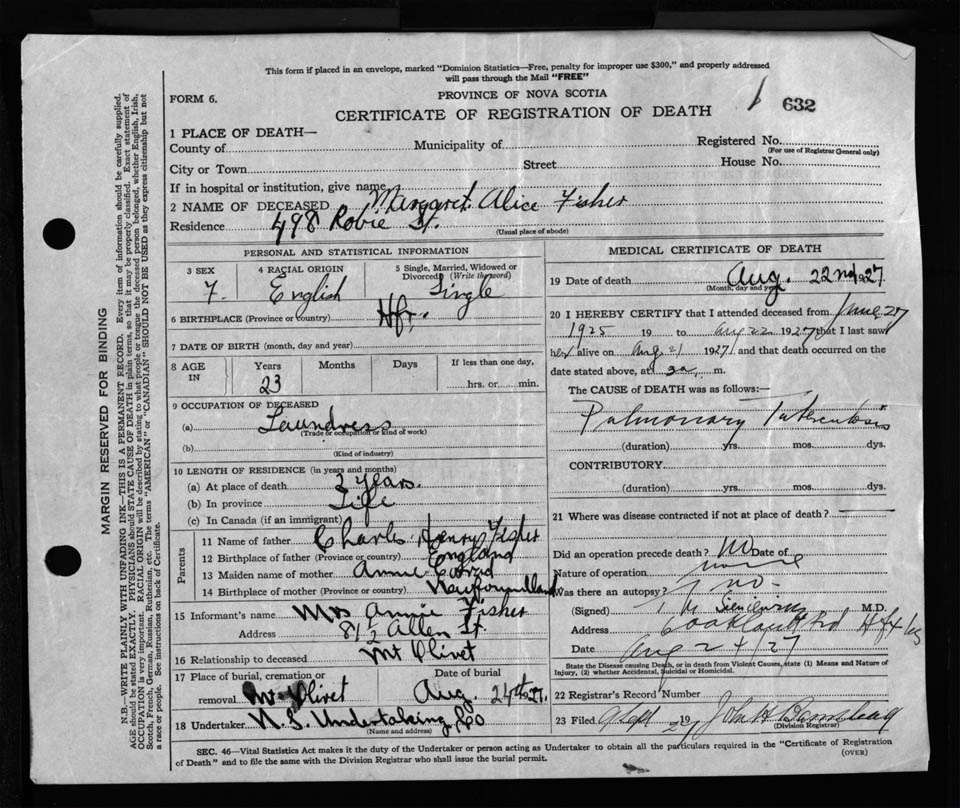 This form if placed in an envelope, marked "Dominion Statistics—Free, penalty for improper use $300," and properly addressed
will pass through the Mail "FREE"
FORM 6.
PROVINCE OF NOVA SCOTIA
CERTIFICATE OF REGISTRATION OF DEATH
632
1 PLACE OF DEATH—
County of Municipality of Registered No.
(For use of Registrar General only)
City or Town Street House No.
If in hospital or institution, give name
2 NAME OF DECEASED Margaret Alice Fisher
Residence 498 Robie St.
(Usual place of abode)
PERSONAL AND STATISTICAL INFORMATION
3 SEX 4 RACIAL ORIGIN 5 Single, Married, Widowed or
Divorced (Write the word)
F. English Single
6 BIRTHPLACE (Province or country) Hfx.
7 DATE OF BIRTH (month, day and year)
8 AGE IN Years Months Days If less than one day,
23 hrs. or min.
9 OCCUPATION OF DECEASED
(a) Laundress
(Trade or occupation or kind of work)
(b)
(Kind of industry)
10 LENGTH OF RESIDENCE (in years and months)
(a) At place of death 3 years.
(b) In province Life
(c) In Canada (if an immigrant)
Parents
11 Name of father Charles Henry Fisher
12 Birthplace of father (Province or country) England
13 Maiden name of mother Annie
14 Birthplace of mother (Province or country) Newfoundland
15 Informant's name Mrs Annie Fisher
Address 81½ Allen St.
16 Relationship to deceased Mt Olivet
17 Place of burial, cremation or removal Date of burial
Mt Olivet Aug. 24th 1927.
18 Undertaker N.S. Undertaking Co
(Name and address)
MEDICAL CERTIFICATE OF DEATH
19 Date of death Aug. 22nd 1927
(Month, day and year)
20 I HEREBY CERTIFY that I attended deceased from June 27
1925 19 to Aug 22 1927 that I last saw
her alive on Aug 21 1927 and that death occurred on the
date stated above, at 3 a. m.
The CAUSE of DEATH was as follows:
Pulmonary Tuberculosis
(duration) yrs. mos. dys.
CONTRIBUTORY
(duration) yrs. mos. dys.
21 Where was disease contracted if not at place of death?
Did an operation precede death? No Date of
Nature of operation none
Was there an autopsy? no-
(Signed) M.D.
Address Hfx
Date Aug 24/27
State the Disease causing Death, or in death from Violent Causes, state (1) Means and Nature of
Injury, (2) whether Accidental, Suicidal or Homicidal.
22 Registrar's Record Number
23 Filed Sept 2 19 John H
(Division Registrar)
SEC. 46—Vital Statistics Act makes it the duty of the Undertaker or person acting as Undertaker to obtain all the particulars required in the "Certificate of Registration
of Death" and to file the same with the Division Registrar who shall issue the burial permit.
(OVER)
MARGIN RESERVED FOR BINDING
N.B.—WRITE PLAINLY WITH UNFADING INK—THIS IS A PERMANENT RECORD. Every item of information should be carefully supplied.
AGE should be stated EXACTLY. PHYSICIANS should STATE CAUSE OF DEATH in plain terms, so that it may be properly classified. Exact statement of
OCCUPATION is very important. RACIAL ORIGIN will be described by stating to what people or tongue the deceased person belonged, whether English, Irish,
Scotch, French, German, Russian, Ruthenian, etc. The terms "AMERICAN" or "CANADIAN" SHOULD NOT BE USED as they express citizenship but not
a race or people. See instructions on back of Certificate.